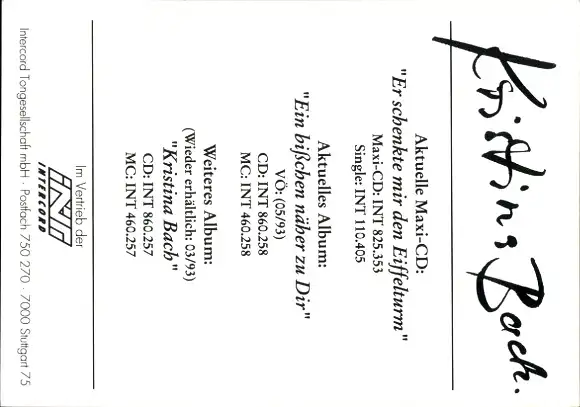 Kristina Bach.
Aktuelle Maxi-CD:
"Er schenkte mir den Eiffelturm"
Maxi-CD: INT 825.353
Single: INT 110.405
Aktuelles Album:
"Ein bißchen näher zu Dir"
VÖ: (05/93)
CD: INT 860.258
MC: INT 460.258
Weiteres Album:
(Wieder erhältlich: 03/93)
"Kristina Bach"
CD: INT 860.257
MC: INT 460.257
Im Vertrieb der
INT
INTERCORD
Intercord Tongesellschaft mbH · Postfach 750 270 · 7000 Stuttgart 75